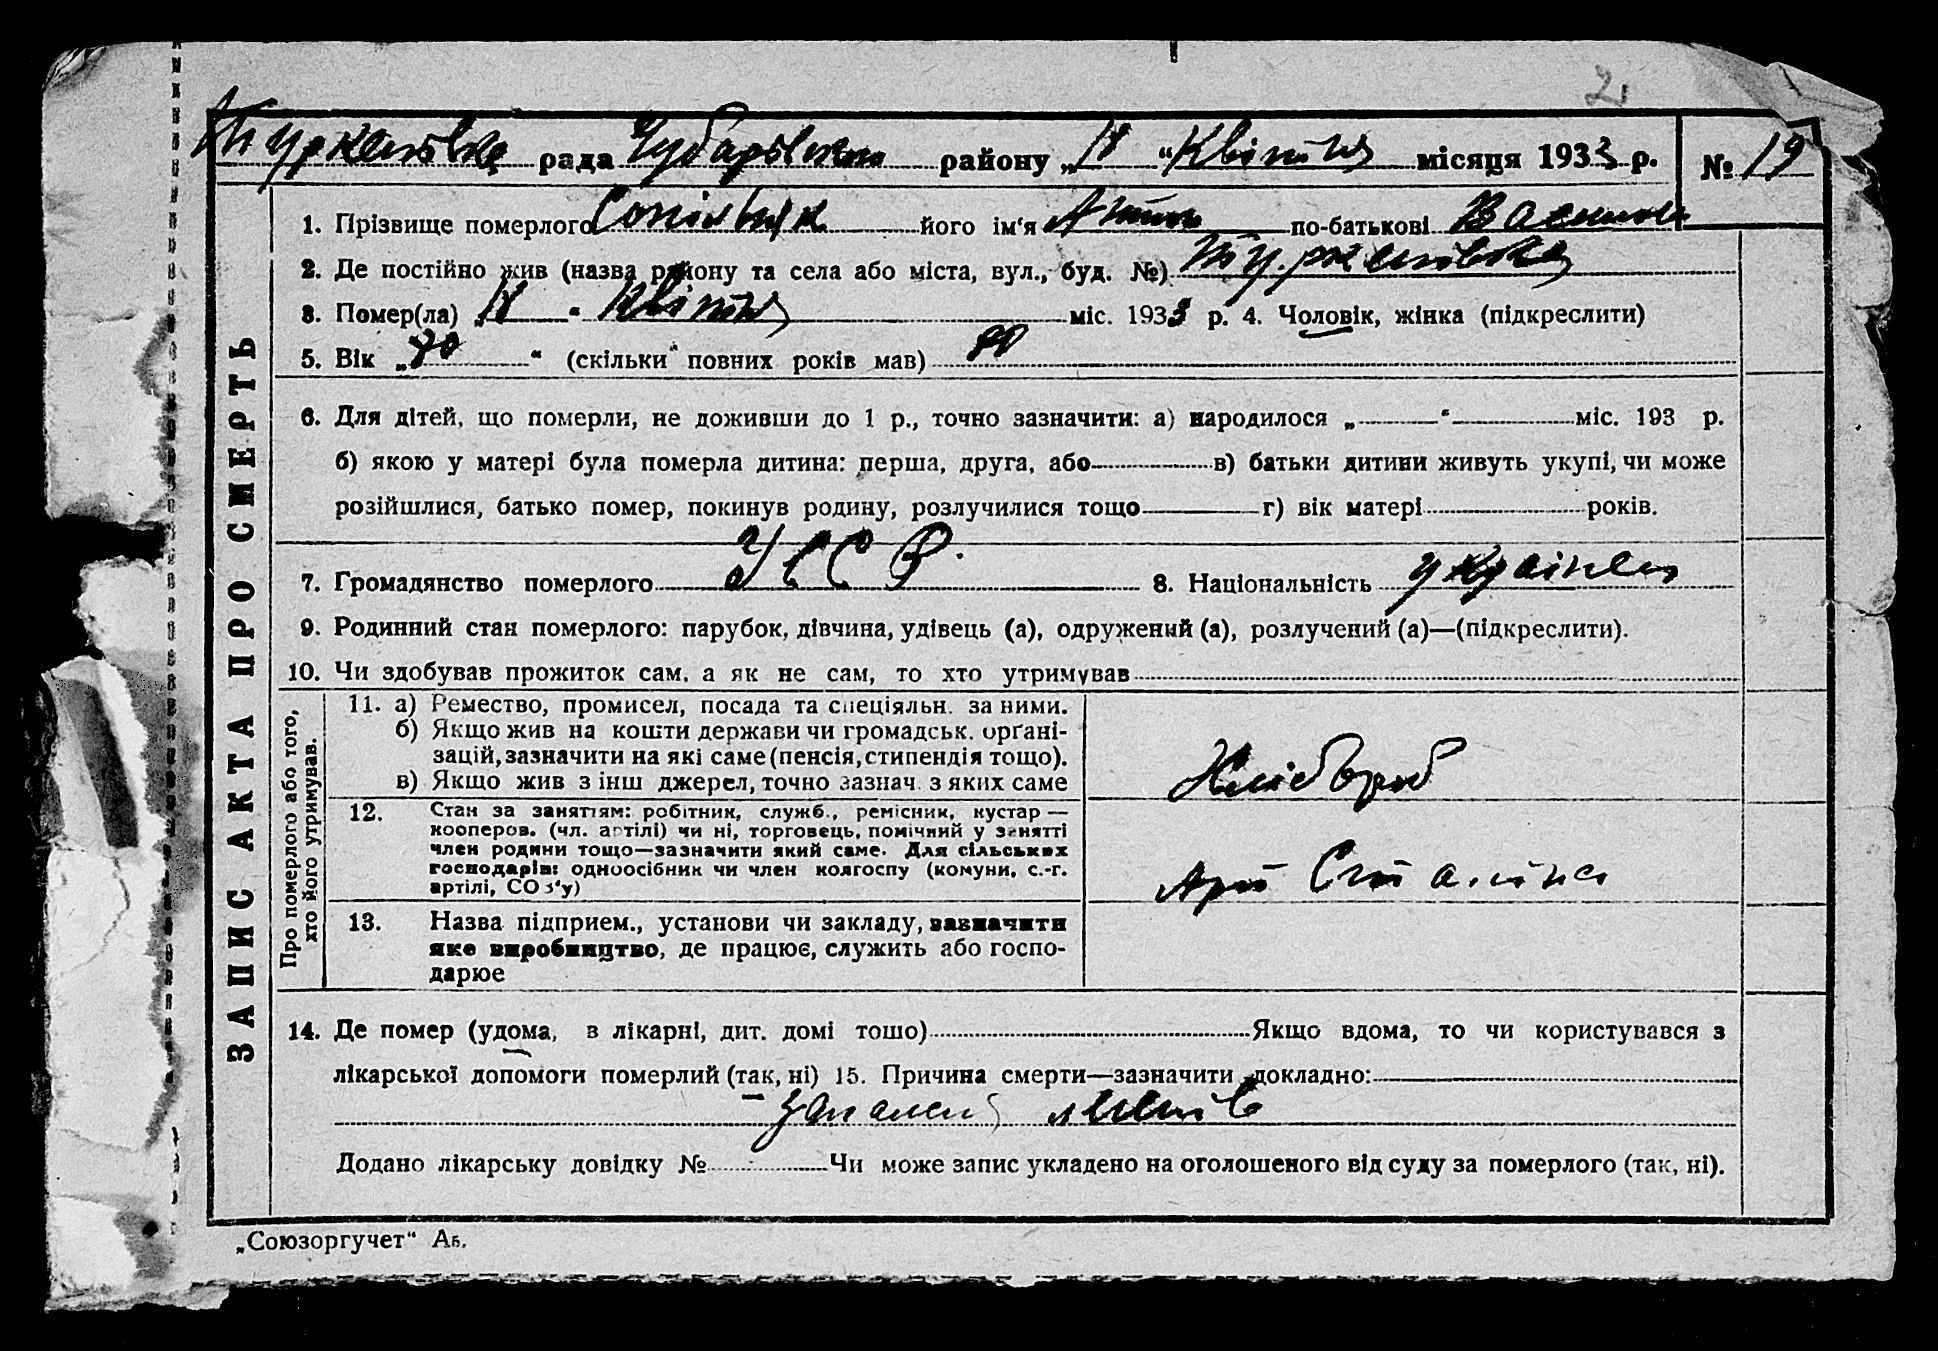 2
Туркенівка рада Чубарівського району „11“ Квітня місяця 1933 р. № 19
ЗАПИС АКТА ПРО СМЕРТЬ
1. Прізвище померлого його ім‘я Антон по-батькові Васильов
2. Де постійно жив (назва району та села або міста, вул., буд. №) Туркенівка
3. Помер(ла) „11“ Квітня міс. 1933 р. 4. Чоловік, жінка (підкреслити)
5. Вік „70“ (скільки повних років мав) 70
6. Для дітей, що померли, не доживши до 1 р., точно зазначити: а) народилося „ “ міс. 193 р.
б) якою у матері була померла дитина: перша, друга, або в) батьки дитини живуть укупі, чи може
розійшлися, батько помер, покинув родину, розлучилися тощо г) вік матері років.
7. Громадянство померлого УССР. 8. Національність українец
9. Родинний стан померлого: парубок, дівчина, удівець (а), одружений (а), розлучений (а)—(підкреслити).
10. Чи здобував прожиток сам, а як не сам, то хто утримував
Про померлого або того,
хто його утримував.
11. а) Ремество, промисел, посада та спеціяльн. за ними.
б) Якщо жив на кошти держави чи громадськ. орґані-
зацій, зазначити на які саме (пенсія, стипендія тощо).
в) Якщо жив з інш джерел, точно зазнач. з яких саме
Хлібороб
12. Стан за заняттям: робітник, служб., ремісник, кустар —
кооперов. (чл. артілі) чи ні, торговець, помічний у занятті
член родини тощо—зазначити який саме. Для сільських
господарів: одноосібник чи член колгоспу (комуни, с.-г.
артілі, СОЗ‘у)
Арт Сталіна
13. Назва підприєм., установи чи закладу, зазначити
яке виробництво, де працює, служить або госпо-
дарює
14. Де помер (удома, в лікарні, дит. домі тошо) Якщо вдома, то чи користувався з
лікарської допомоги померлий (так, ні) 15. Причина смерти—зазначити докладно:
запаленя легенів
Додано лікарську довідку № Чи може запис укладено на оголошеного від суду за померлого (так, ні).
„Союзоргучет“ Аб.